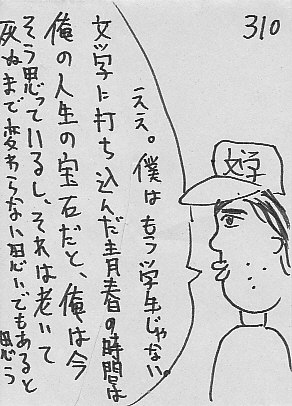 310
文学
ええ。僕はもう学生じゃない。
文学に打ち込んだ青春の時間は
俺の人生の宝石だと、俺は今
そう思っているし、それは老いて
死ぬまで変わらない思いでもあると
思う